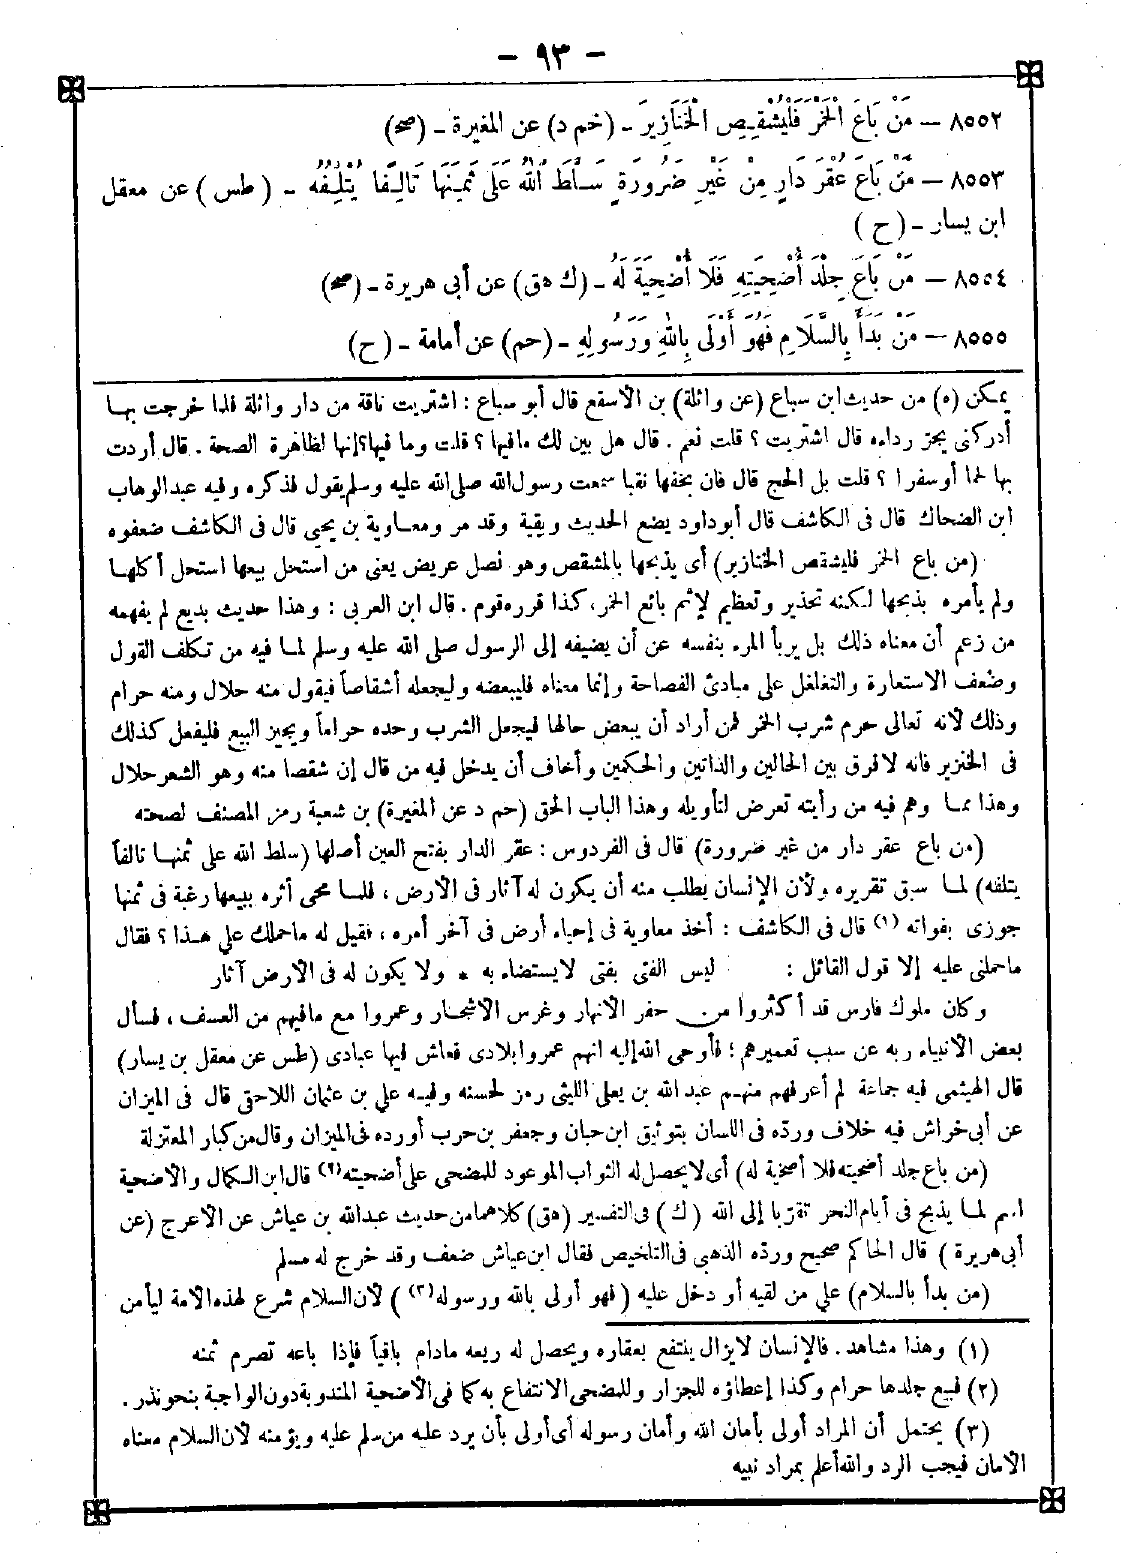 - ٩٣ -
٨٥٥٢ - مَنْ بَاعَ الْخَمْرَ فَلْيُشَقِّصِ الْخَنَازِيرَ - (حم د) عن المغيرة - (صح)
٨٥٥٣ - مَنْ بَاعَ عُقْرَ دَارٍ مِنْ غَيْرِ ضَرُورَةٍ سَلَّطَ اللهُ عَلَى ثَمَنِهَا تَالِفًا يُتْلِفُهُ - (طس) عن معقل
ابن يسار - (ح)
٨٥٥٤ - مَنْ بَاعَ جِلْدَ أُضْحِيَتِهِ فَلَا أُضْحِيَةَ لَهُ - (ك هق) عن أبي هريرة - (صح)
٨٥٥٥ - مَنْ بَدَأَ بِالسَّلَامِ فَهُوَ أَوْلَى بِاللهِ وَرَسُولِهِ - (حم) عن أمامة - (ح)
يمكن (ه) من حديث ابن سباع (عن واثلة) بن الأسقع قال أبو سباع : اشتريت ناقة من دار واثلة فلما خرجت بها
أدركني يجر رداءه قال اشتريت ؟ قلت نعم . قال هل بين لك مافيها ؟ قلت وما فيها؟ إنها لظاهرة الصحة . قال أردت
بها لحما أوسفرا ؟ قلت بل الحج قال فان بخفها نقبا سمعت رسول الله صلى الله عليه وسلم يقول فذكره وفيه عبدالوهاب
ابن الضحاك قال فى الكاشف قال أبوداود يضع الحديث وبقية وقد مر ومعاوية بن يحيى قال فى الكاشف ضعفوه
(من باع الخمر فليشقص الخنازير) أى يذبحها بالمشقص وهو نصل عريض يعنى من استحل بيعها استحل أكلها
ولم يأمره بذبحها لكنه تحذير وتعظيم لإثم بائع الخمر، كذا قرره قوم . قال ابن العربى : وهذا حديث بديع لم يفهمه
من زعم أن معناه ذلك بل يربأ المرء بنفسه عن أن يضيفه إلى الرسول صلى الله عليه وسلم لما فيه من تكلف القول
وضعف الاستعارة والتغلغل على مبادئ الفصاحة وإنما معناه فليبعضه وليجعله أشقاصاً فيقول منه حلال ومنه حرام
وذلك لأنه تعالى حرم شرب الخمر فمن أراد أن يبعض حالها فيجعل الشرب وحده حراماً ويجيز البيع فليفعل كذلك
فى الخنزير فانه لافرق بين الحالين والذاتين والحكمين وأخاف أن يدخل فيه من قال إن شقصا منه وهو الشعر حلال
وهذا مما وهم فيه من رأيته تعرض لتأويله وهذا الباب الحق (حم د عن المغيرة) بن شعبة رمز المصنف لصحته
(من باع عقر دار من غير ضرورة) قال فى الفردوس : عقر الدار بفتح العين أصلها (سلط الله على ثمنها تالفاً
يتلفه) لما سبق تقريره ولأن الإنسان يطلب منه أن يكون له آثار فى الأرض ، فلما محى أثره ببيعها رغبة فى ثمنها
جوزى بفواته (١) قال فى الكاشف : أخذ معاوية فى إحياء أرض فى آخر أمره ، فقيل له ماحملك على هذا ؟ فقال
ماحملنى عليه إلا قول القائل : ليس الفتى بفتى لايستضاء به * ولا يكون له فى الأرض آثار
وكان ملوك فارس قد أكثروا من حفر الأنهار وغرس الأشجار وعمروا مع مافيهم من العسف ، فسأل
بعض الأنبياء ربه عن سبب تعميرهم ؛ فأوحى الله إليه انهم عمروا بلادى فعاش فيها عبادى (طس عن معقل بن يسار)
قال الهيثمى فيه جماعة لم أعرفهم منهم عبد الله بن يعلى الليثى رمز لحسنه وفيه على بن عثمان اللاحقى قال فى الميزان
عن أبى خراش فيه خلاف ورده فى اللسان بتوثيق ابن حبان وجعفر بن حرب أورده فى الميزان وقال من كبار المعتزلة
(من باع جلد أضحيته فلا أضحية له) أى لايحصل له الثواب الموعود للمضحى على أضحيته (٢) قال ابن الكمال والأضحية
اسم لما يذبح فى أيام النحر تقرّبا إلى الله (ك) فى التفسير (هق) كلاهما من حديث عبدالله بن عياش عن الأعرج (عن
أبى هريرة) قال الحاكم صحيح وردّه الذهبى فى التلخيص فقال ابن عياش ضعف وقد خرج له مسلم
(من بدأ بالسلام) على من لقيه أو دخل عليه (فهو أولى بالله ورسوله (٣)) لأن السلام شرع لهذه الأمة ليأمن
(١) وهذا مشاهد . فالإنسان لايزال ينتفع بعقاره ويحصل له ريعه مادام باقياً فإذا باعه تصرم ثمنه
(٢) فبيع جلدها حرام وكذا إعطاؤه للجزار وللمضحى الانتفاع به كما فى الأضحية المندوبة دون الواجبة بنحو نذر .
(٣) يحتمل أن المراد أولى بأمان الله وأمان رسوله أى أولى بأن يرد عليه من سلم عليه ويؤمنه لأن السلام معناه
الأمان فيجب الرد والله أعلم بمراد نبيه